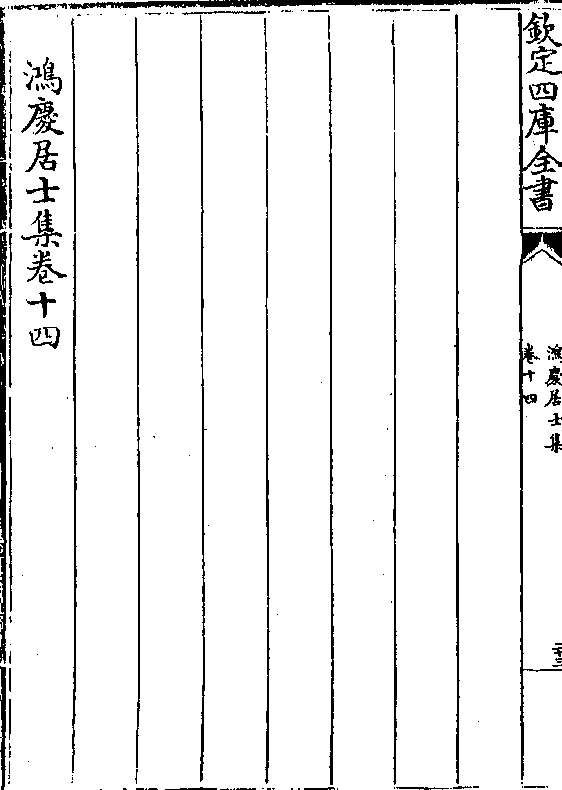 欽定四庫全書
鴻慶居士集
卷十四
鴻慶居士集卷十四